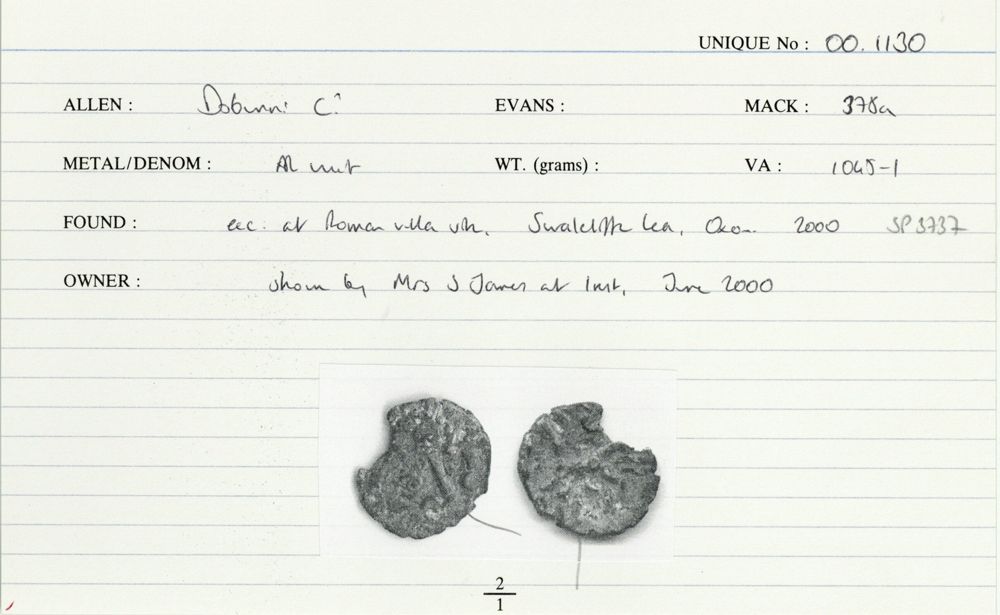 UNIQUE No : 00.1130
ALLEN : Dobunni C? EVANS : MACK : 378a
METAL/DENOM : AR unit WT. (grams) : VA : 1045-1
FOUND : exc. at Roman villa site, Swalcliffe Lea, Oxon. 2000 SP3737
OWNER : shown by Mrs S James at Inst, June 2000
2
1